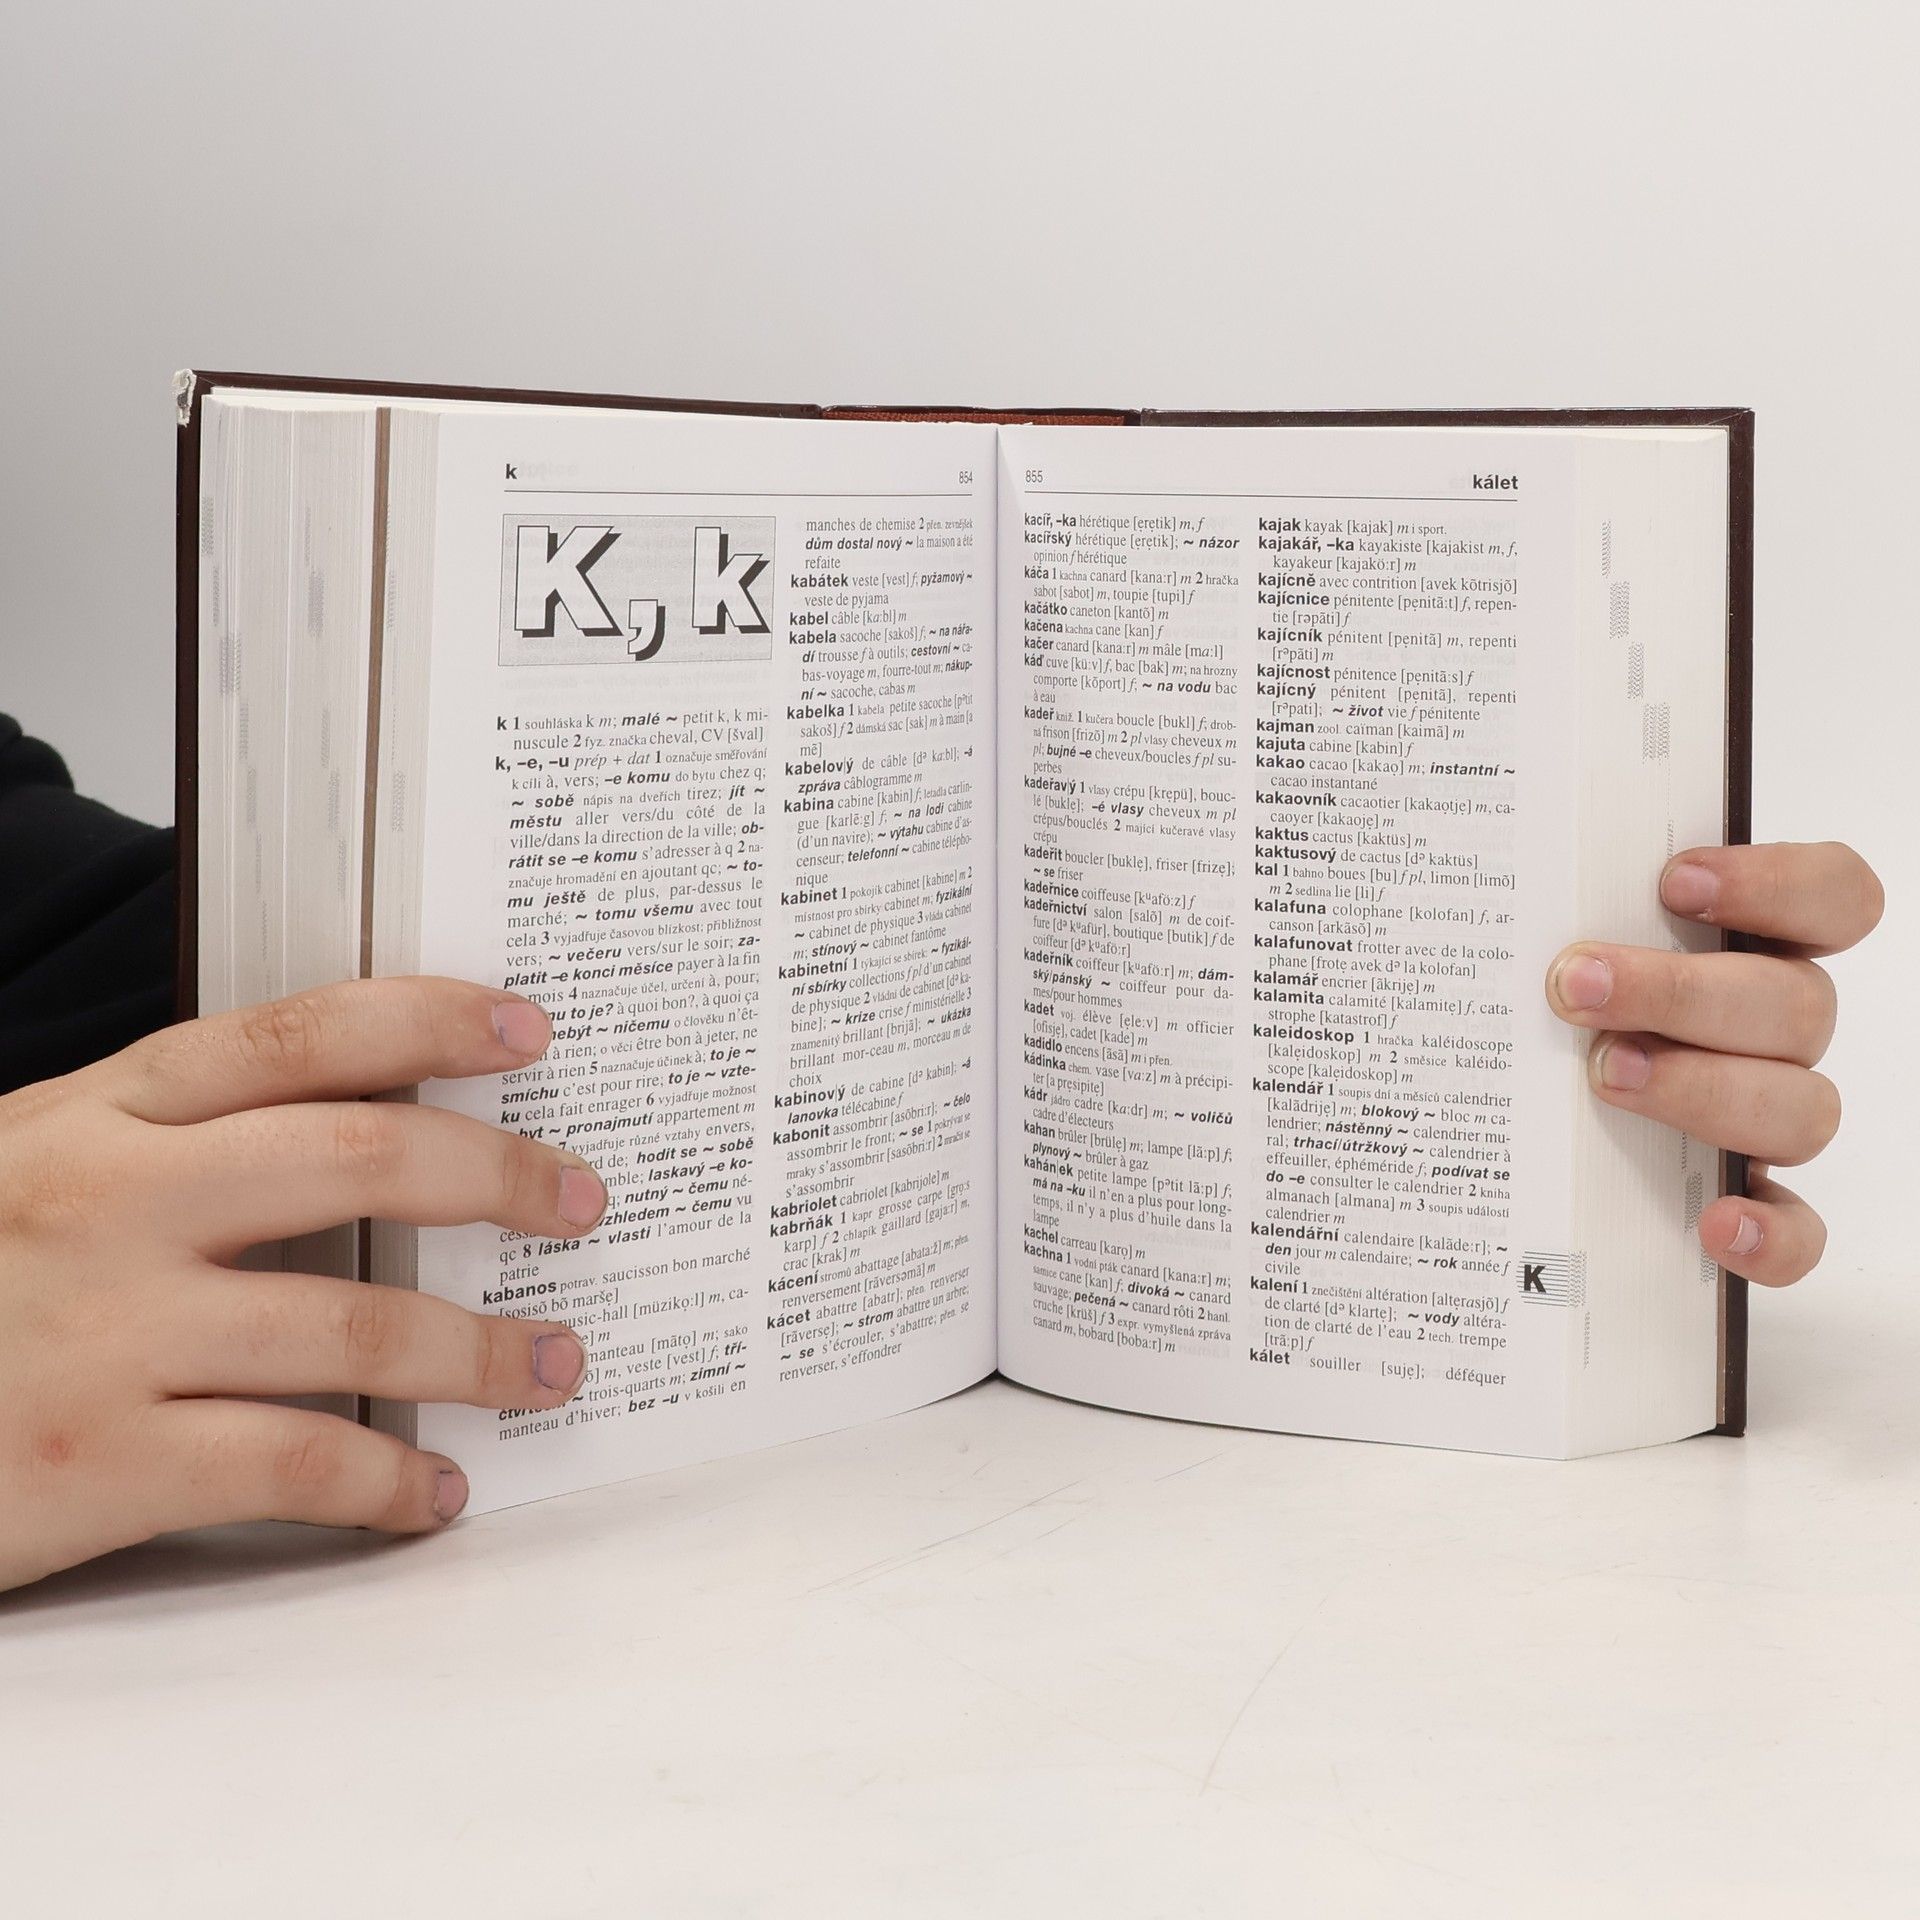 k
854
K, k
k 1 souhláska k m; malé ~ petit k, k mi-
nuscule 2 fyz. značka cheval, CV [šval]
k, –e, –u prép + dat 1 označuje směřování
k cíli à, vers; –e komu do bytu chez q;
~ sobě nápis na dveřích tirez; jít ~
městu aller vers/du côté de la
ville/dans la direction de la ville; ob-
rátit se –e komu s’adresser à q 2 na-
značuje hromadění en ajoutant qc; ~ to-
mu ještě de plus, par-dessus le
marché; ~ tomu všemu avec tout
cela 3 vyjadřuje časovou blízkost; přibližnost
vers; ~ večeru vers/sur le soir; za-
platit –e konci měsíce payer à la fin
mois 4 naznačuje účel, určení à, pour;
to je? à quoi bon?, à quoi ça
nebýt ~ ničemu o člověku n’êt-
à rien; o věci être bon à jeter, ne
servir à rien 5 naznačuje účinek à; to je ~
smíchu c’est pour rire; to je ~ vzte-
ku cela fait enrager 6 vyjadřuje možnost
byt ~ pronajmutí appartement m
7 vyjadřuje různé vztahy envers,
de; hodit se ~ sobě
laskavý –e ko-
nutný ~ čemu né-
vzhledem ~ čemu vu
qc 8 láska ~ vlasti l’amour de la
patrie
kabanos potrav. saucisson bon marché
[sosisõ bõ marše]
music-hall [müziko:l] m, ca-
m
manteau [mãto] m; sako
m, veste [vest] f; tří-
~ trois-quarts m; zimní ~
manteau d’hiver; bez –u v košili en
manches de chemise 2 přen. zevnějšek
dům dostal nový ~ la maison a été
refaite
kabátek veste [vest] f; pyžamový ~
veste de pyjama
kabel câble [ka:bl] m
kabela sacoche [sakoš] f; ~ na nářa-
dí trousse f à outils; cestovní ~ ca-
bas-voyage m, fourre-tout m; nákup-
ní ~ sacoche, cabas m
kabelka 1 kabela petite sacoche [pᵊtit
sakoš] f 2 dámská sac [sak] m à main [a
mẽ]
kabelov|ý de câble [dᵊ ka:bl]; –á
zpráva câblogramme m
kabina cabine [kabin] f; letadla carlin-
gue [karlẽ:g] f; ~ na lodi cabine
(d’un navire); ~ výtahu cabine d’as-
censeur; telefonní ~ cabine télépho-
nique
kabinet 1 pokojík cabinet [kabine] m 2
místnost pro sbírky cabinet m; fyzikální
~ cabinet de physique 3 vláda cabinet
m; stínový ~ cabinet fantôme
kabinetní 1 týkající se sbírek: ~ fyzikál-
ní sbírky collections f pl d’un cabinet
de physique 2 vládní de cabinet [dᵊ ka-
bine]; ~ krize crise f ministérielle 3
znamenitý brillant [brijã]; ~ ukázka
brillant mor-ceau m, morceau m de
choix
kabinov|ý de cabine [dᵊ kabin]; –á
lanovka télécabine f
kabonit assombrir [asõbri:r]; ~ čelo
assombrir le front; ~ se 1 pokrývat se
mraky s’assombrir [sasõbri:r] 2 mračit se
s’assombrir
kabriolet cabriolet [kabrijole] m
kabrňák 1 kapr grosse carpe [gro:s
karp] f 2 chlapík gaillard [gaja:r] m,
crac [krak] m
kácení stromů abattage [abata:ž] m; přen.
renversement [rãversəmã] m
kácet abattre [abatr]; přen. renverser
[rãverse]; ~ strom abattre un arbre;
~ se s’écrouler, s’abattre; přen. se
renverser, s’effondrer
855
kálet
kacíř, –ka hérétique [eretik] m, f
kacířský hérétique [eretik]; ~ názor
opinion f hérétique
káča 1 kachna canard [kana:r] m 2 hračka
sabot [sabot] m, toupie [tupi] f
kačátko caneton [kantõ] m
kačena kachna cane [kan] f
kačer canard [kana:r] m mâle [ma:l]
káď cuve [kü:v] f, bac [bak] m; na hrozny
comporte [kõport] f; ~ na vodu bac
à eau
kadeř kniž. 1 kučera boucle [bukl] f; drob-
ná frison [frizõ] m 2 pl vlasy cheveux m
pl; bujné –e cheveux/boucles f pl su-
perbes
kadeřav|ý 1 vlasy crépu [krepü], bouc-
lé [bukle]; –é vlasy cheveux m pl
crépus/bouclés 2 mající kučeravé vlasy
crépu
kadeřit boucler [bukle], friser [frize];
~ se friser
kadeřnice coiffeuse [kᵘafö:z] f
kadeřnictví salon [salõ] m de coif-
fure [dᵊ kᵘafür], boutique [butik] f de
coiffeur [dᵊ kᵘafö:r]
kadeřník coiffeur [kᵘafö:r] m; dám-
ský/pánský ~ coiffeur pour da-
mes/pour hommes
kadet voj. élève [ele:v] m officier
[ofisje], cadet [kade] m
kadidlo encens [ãsã] m i přen.
kádinka chem. vase [va:z] m à précipi-
ter [a presipite]
kádr jádro cadre [ka:dr] m; ~ voličů
cadre d’électeurs
kahan brûler [brüle] m; lampe [lã:p] f;
plynový ~ brûler à gaz
kahán|ek petite lampe [pᵊtit lã:p] f;
má na –ku il n’en a plus pour long-
temps, il n’y a plus d’huile dans la
lampe
kachel carreau [karo] m
kachna 1 vodní pták canard [kana:r] m;
samice cane [kan] f; divoká ~ canard
sauvage; pečená ~ canard rôti 2 hanl.
cruche [krüš] f 3 expr. vymyšlená zpráva
canard m, bobard [boba:r] m
kajak kayak [kajak] m i sport.
kajakář, –ka kayakiste [kajakist m, f,
kayakeur [kajakö:r] m
kajícně avec contrition [avek kõtrisjõ]
kajícnice pénitente [penitã:t] f, repen-
tie [rəpãti] f
kajícník pénitent [penitã] m, repenti
[rᵊpãti] m
kajícnost pénitence [penitã:s] f
kajícný pénitent [penitã], repenti
[rᵊpati]; ~ život vie f pénitente
kajman zool. caïman [kaimã] m
kajuta cabine [kabin] f
kakao cacao [kakao] m; instantní ~
cacao instantané
kakaovník cacaotier [kakaotje] m, ca-
caoyer [kakaoje] m
kaktus cactus [kaktüs] m
kaktusový de cactus [dᵊ kaktüs]
kal 1 bahno boues [bu] f pl, limon [limõ]
m 2 sedlina lie [li] f
kalafuna colophane [kolofan] f, ar-
canson [arkãsõ] m
kalafunovat frotter avec de la colo-
phane [frote avek dᵊ la kolofan]
kalamář encrier [ãkrije] m
kalamita calamité [kalamite] f, cata-
strophe [katastrof] f
kaleidoskop 1 hračka kaléidoscope
[kaleidoskop] m 2 směsice kaléido-
scope [kaleidoskop] m
kalendář 1 soupis dní a měsíců calendrier
[kalãdrije] m; blokový ~ bloc m ca-
lendrier; nástěnný ~ calendrier mu-
ral; trhací/útržkový ~ calendrier à
effeuiller, éphéméride f; podívat se
do –e consulter le calendrier 2 kniha
almanach [almana] m 3 soupis událostí
calendrier m
kalendářní calendaire [kalãde:r]; ~
den jour m calendaire; ~ rok année f
civile
kalení 1 znečištění altération [alterasjõ] f
de clarté [dᵊ klarte]; ~ vody altéra-
tion de clarté de l’eau 2 tech. trempe
[trã:p] f
kálet souiller [suje]; déféquer
K